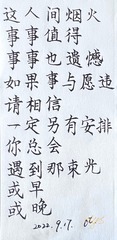 这人间烟火
事事值得
事事也遗憾
如果事与愿违
请相信
一定另有安排
你总会
遇到那束光
或早
或晚
2022.9.17.